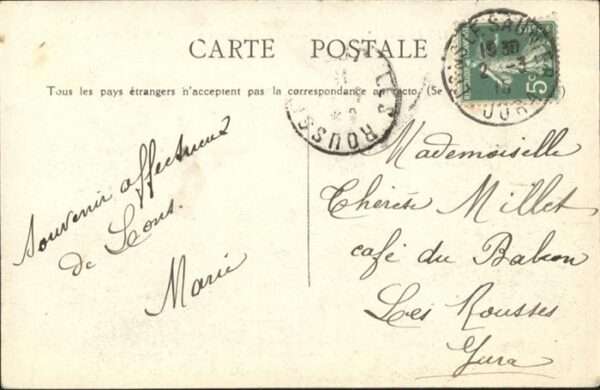 CARTE POSTALE
Tous les pays étrangers n'acceptent pas la correspondance au recto. (Se
LES ROUSSES
LONS-LE-SAUNIER
JURA
5c
Souvenir affectueux
de Lons.
Marie
Mademoiselle
Thérèse Millet
café du Balcon
Les Rousses
Jura